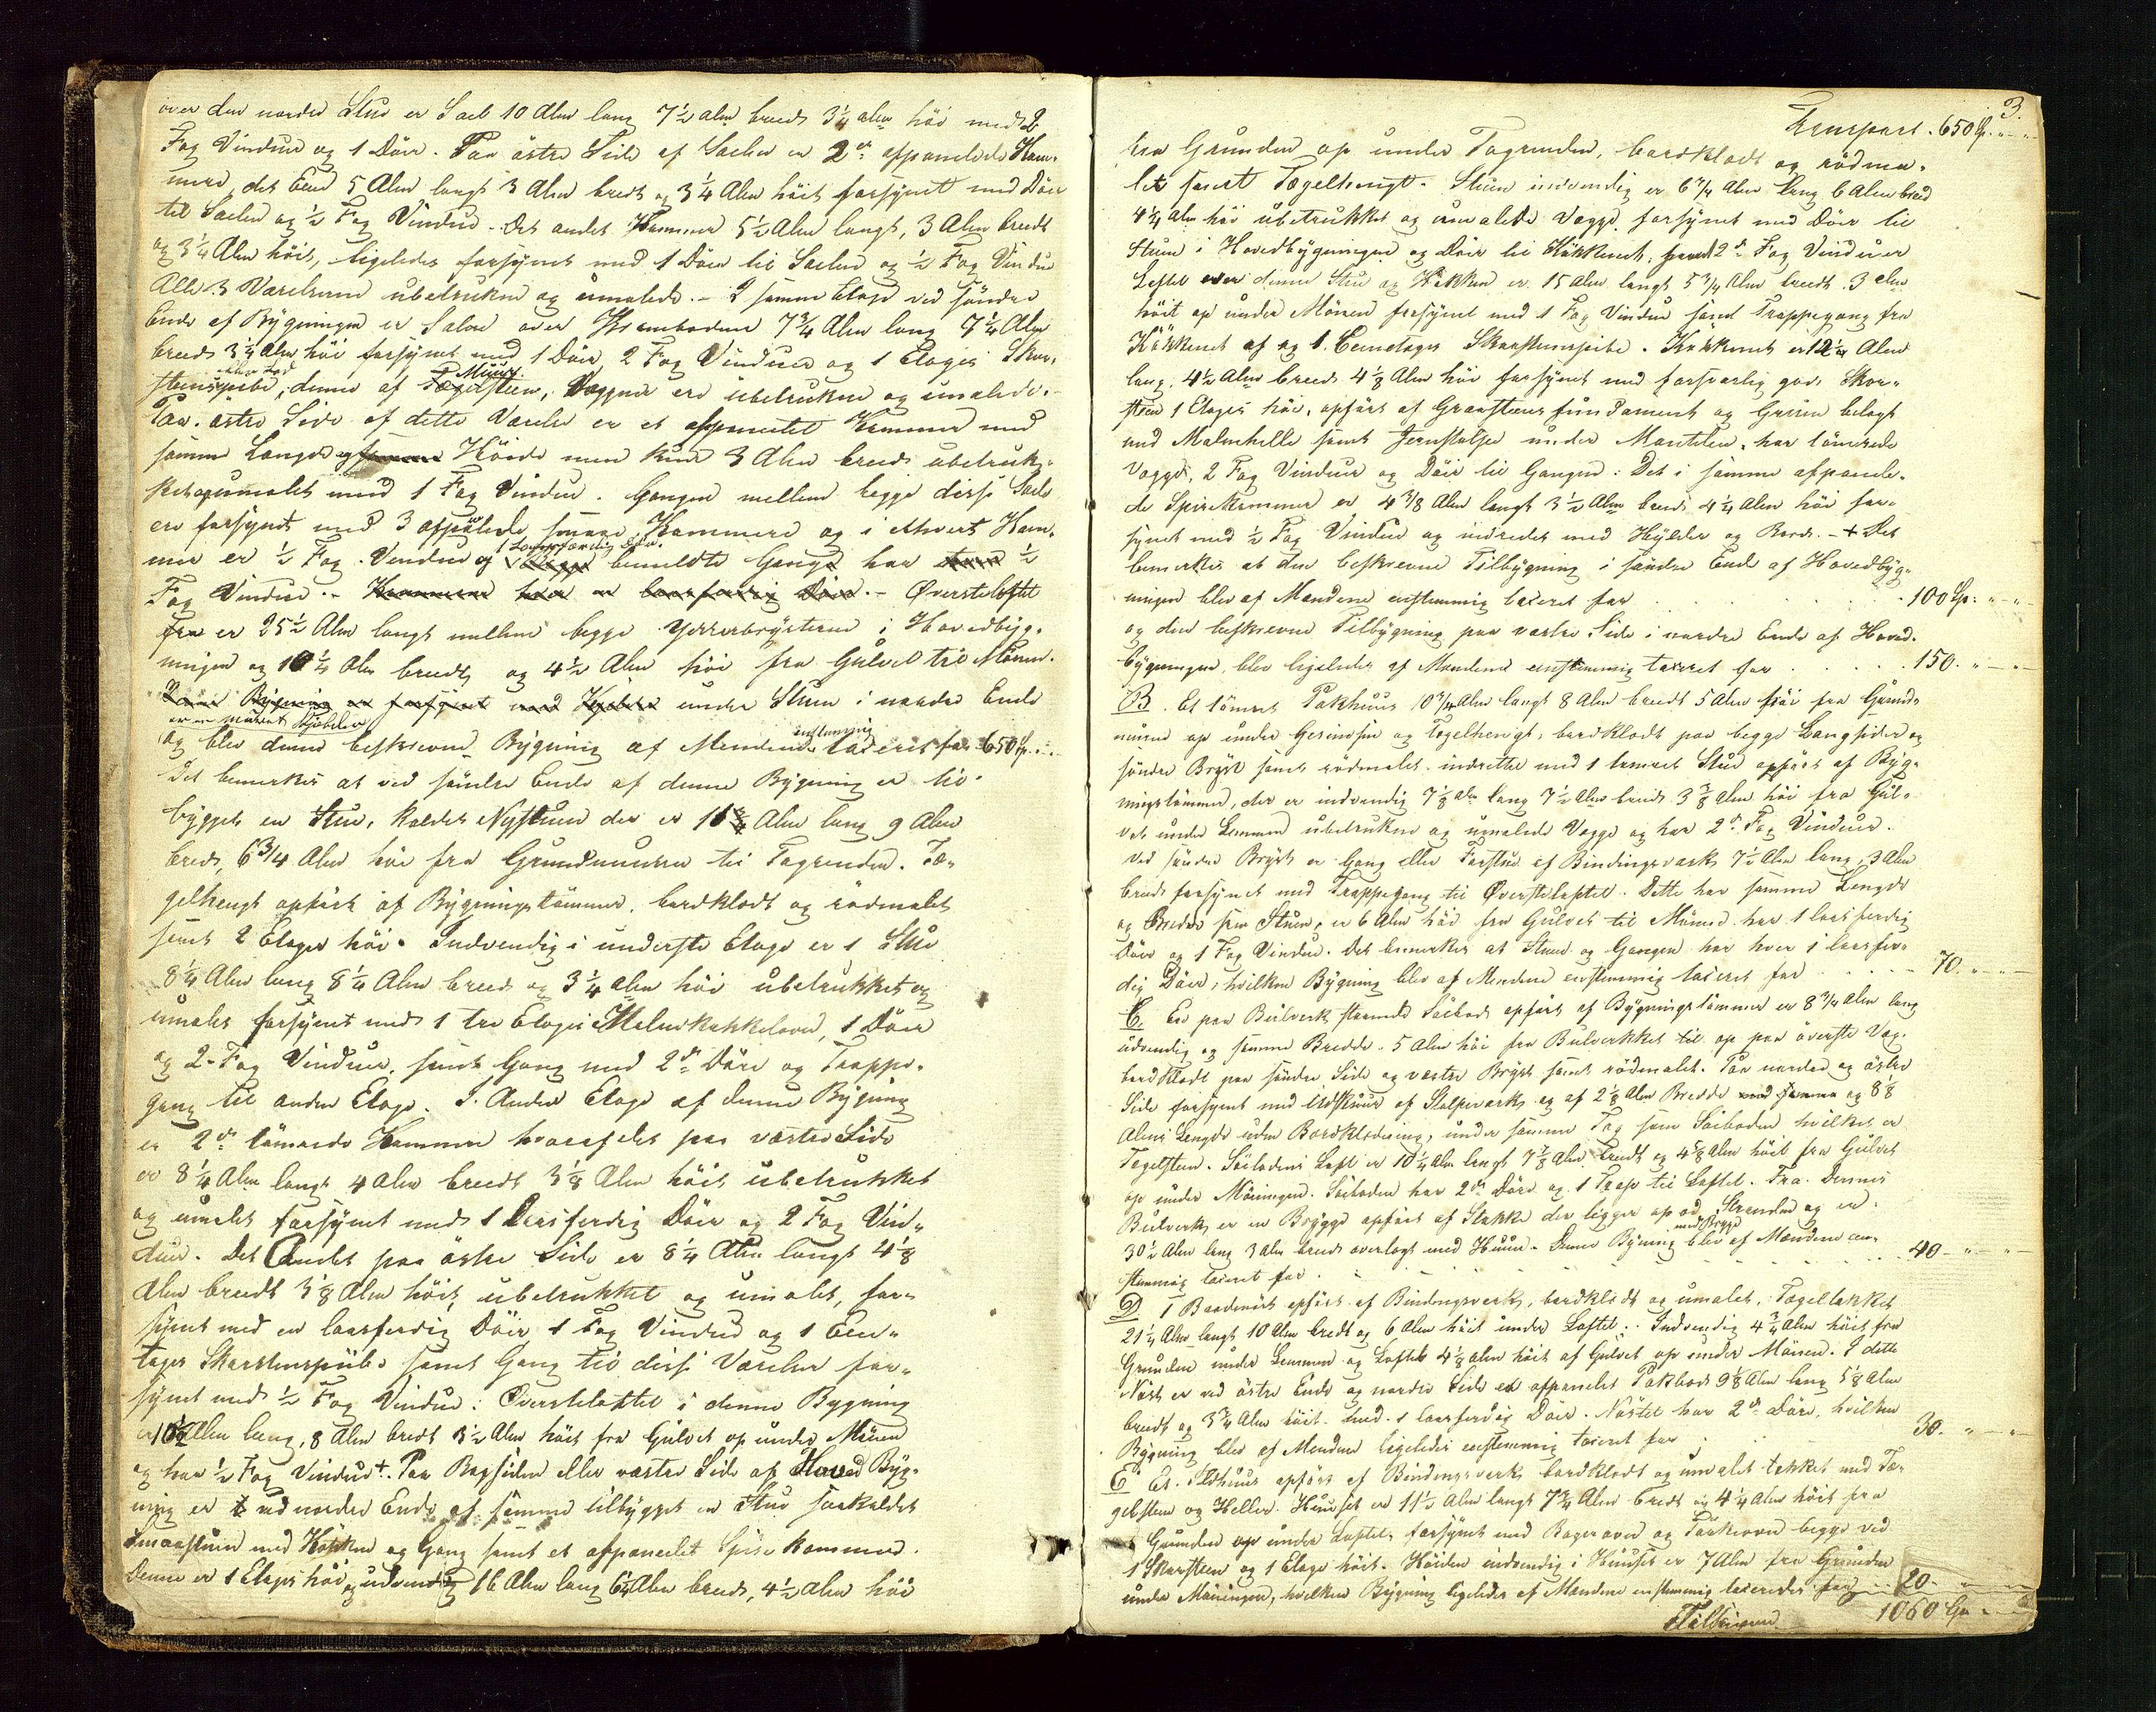 over den nordre Stue er Sael 10 Alen lang 7½ alen breed 3¼ alen höi med 2
Fag Vinduer og 1 Döer. Paa östre Side af Saelen er 2de afpanelede Kam-
mere, det Eene 5 Alen langt 3 Alen bredt og 3¼ Alen höit forsÿnet med Döer
til Saelen og ½ Fag Vindue. Det andet Kammer 5½ Alen langt, 3 Alen breedt
og 3¼ Alen höit, ligeledes forsÿnet med 1 Döer til Saelen og ½ Fag Vindue
Alle 3 Værelserne ubetrukne og umalede. - I samme Etage ved söndre
Ende af Bÿgningen er Salen over Krambodene 7¾ Alen lang 7¼ Alen
breed 3¼ Alen höi forsÿnet med 1 Döer, 2 Fag Vinduer og 1 Etages Skor-
steenspibe, denne af Muur Tægelsteen, Væggene ere ubetrukne og umalede. -
Paa östre Side af dette Værelse er et afpaneelet Kammer med
samme Længde og Höide men kuns 3 Alen breed ubetruk-
ket og umalet med 1 Fag Vindue. Gangen mellem begge disse Sæle
ere forsÿnet med 3 afpælede smaae Kammere og i ethvert Kam-
mer er ½ Fag Vindue og 1 laasfærdig Döer. bemeldte Gange har ½
Fag Vindue. - Kammerne hver en laasferdig Döer. - Øversteloftet
er 25½ Alen langt mellem begge Ÿdrebrÿsterne i Hovedbÿg-
ningen og 10½ Alen breedt, og 4½ Alen höi fra Gulvet til Mönen.
Denne Bÿgning er forsÿnet med Kjelder under Stuen i nordre Ende
er en muuret Kjelder
og blev denne beskrevne Bÿgning af Mændene eenstemmig taxeret for 650 Sp.
Det bemerkes at ved söndre Ende af denne Bÿgning er til-
bÿgget en Stue, kaldet Nÿstuen der er 11¾ Alen lang 9 Alen
breed, 6¾ Alen höi fra Grundmuuren til Tagrenden. Tæ-
gelhengt opfört af Bÿgningstömmer, bordklædt og rödmalet
samt 2 Etager höi. Indvendig i underste Etage er 1 Stue
8¼ Alen lang 8¼ Alen breed og 3¼ alen höi ubetrukket og
umalet forsÿnet med 1 tre Etages Malmkakkelovn, 1 Döer
og 2 Fag Vinduer, samt Gang med 2de Döre og Trappe-
gang til anden Etage. I Anden Etage af denne Bÿgning
er 2de tömrede Kammere hvoraf det paa vestre Side
er 8¼ Alen langt 4 Alen breedt 3⅛ Alen höit ubetrukket
og umalet forsÿnet med 1 Laasferdig Döer og 2 Fag Vin-
duer. Det Andet paa östre Side er 8¼ Alen langt 4⅛
Alen breedt 3⅛ Alen höit, ubetrukket og umalet, for-
sÿnet med en laasferdig Döer 1 Fag Vindue og 1 Een-
tages Skorsteenspibe samt Gang til disse Værelser for-
sÿnet med ½ Fag Vindue. Øversteloftet i denne Bygning
er 10½ Alen lang, 8 Alen bredt 3½ Alen höit fra Gulvet op under Mönen
og har ½ Fag Vindue +. Paa Bagsiden eller vestre Side af Hoved Bÿg-
ning er ved nordre Ende af samme tilbÿgget en Stue saakaldet
Smaastuen med Kökken og Gang samt et afpaneelet Spise Kammer.
Denne er 1 Etages höi, og udvendig 16 Alen lang 6¼ Alen breed, 4½ Alen höi
3.
Transport. 650 Sp.
fra Grunden op under Tagrenden, bordklædt og rödma-
let samt Tægelhengt. Stuen indvendig er 6¾ Alen lang 6 Alen breed
4¼ Alen höi ubetrukket og umalede Vægge forsÿnet med Döer til
Stuen i Hovedbÿgningen og Döer til Kökkenet, samt 2de Fag Vinduer
Loftet over denne Stue og Kökken er 15 Alen langt 5¾ Alen breedt 3 alen
höit op under Mönen forsÿnet med 1 Fag Vindue samt Trappegang fra
Kökkenet af og 1 Eenetages Skorsteenspibe. Kökkenet er 12¼ Alen
lang, 4½ Alen breed 4⅛ Alen höi forsÿnet med forsvarlig god Skor-
steen 1 Etages höi, opfört af Graasteens fundament og Gruen belagt
med Malmhelle samt Jernstolpe under Mantelen, har tömrede
Vægge, 2 Fag Vinduer og Döer til Gangen. Det i samme afpanele-
de Spisekammer er 4⅜ Alen langt 3½ Alen breed 4¼ Alen höi for-
sÿnet med ½ Fag Vindue og indredet med Hÿlder og Bord. - + Det
bemerkes at den beskrevne Tilbÿgning i söndre Ende af Hovedbÿg-
ningen blev af Mændene eenstemmig taxeret for . . . 100 Sp.
og den beskrevne Tilbÿgning paa vestre Side i nordre Ende af Hoved-
bÿgningen blev ligeledes af Mændene eenstemmig taxeret for . . . 150.
B. Et tömret Pakhuus 10¾ Alen langt 8 Alen breedt 5 Alen höi fra Grund-
muren op under Gesimsen og Tægelhengt, bordklædt paa begge Langsider og
söndre Brÿst samt rödmalet. indrettet med 1 tömret Stue opfört af Bÿg-
ningstömmer, der er indvendig 7⅛ Alen lang 7½ Alen breed 3⅜ Alen höi fra Gul-
vet under Lemmen ubetrukne og umalede Vægge og har 2de Fag Vinduer.
Ved söndre Brÿst er Gang eller Forstue af Bindingsverk 7½ Alen lang, 3 Alen
breed forsÿnet med Trappegang til Øversteloftet. Dette har samme Længde
og Bredde som Stuen, er 6 Alen höi fra Gulvet til Mönen har 1 laasferdig
Döer og 1 Fag Vindue. Det bemerkes at Stuen og Gangen har hver 1 laasfer-
dig Döer, hvilken Bÿgning blev af Mændene eenstemmig taxeret for . . . 70.
C. En paa Bulverk staaende Söebod opfört af Bÿgningstömmer er 8¾ Alen lang
udvendig og samme Bredde. 5 Alen höi fra Bulverkket til op paa överste Væg.
bordklædt paa söndre Side og vestre Brÿst samt rödmalet. Paa nordre og östre
Side forsÿnet med Udskuur af Stolpeverk og af 2⅛ Alen Bredde og 8⅛
Alens Længde uden Bordklædning, under samme Tag som Söeboden hvilket er
Tægelsteen. Söebodens Loft er 10¼ Alen langt 7⅞ Alen breedt og 4⅝ Alen höit fra Gulvet
op under Möningen. Söeboden har 2de Döre og 1 Trap til Loftet. Fra Dennes
Bulverk er en Brÿgge opfört af Stokke der ligger op ad Stranden og er
30½ Alen lang 3 Alen breed overlagt med Huun. Denne Bÿgning med Brygge blev af Mændene een-
stemmig taxeret for . . . 40.
D 1 Baadenöst opfört af Bindingsverk, bordklædt og umalet. Tægeltækket
21¼ Alen langt 10 Alen bredt og 6 Alen höit under Loftet. Indvendig 4¾ Alen höit fra
Grunden under Lemmen og Loftet 4⅛ alen höit af Gulvet op under Mönen. I dette
Nöst er ved östre Ende og nordre Side et afpanelet Pakbod 9⅛ Alen lang 5⅛ Alen
breedt og 3¾ Alen höit med 1 laasferdig Döer. Nöstet har 2de Döre, hvilken
Bÿgning blev af Mændene ligeledes eenstemmig taxeret for . . . 30.
E Et Ildhuus opfört af Bindingsverk bordklædt og umalet tækket med Tæ-
gelsteen og Heller. Huuset er 11½ Alen langt 7¾ Alen bredt og 4¼ Alen höit fra
Grunden op under Loftet, forsÿnet med Bagerovn og Törkeovn begge ved
1 Skorsteen og 1 Etage höit. Höiden indvendig i Huuset er 7 Alen fra Grunden
under Möningen, hvilken Bÿgning ligeledes af Mændene eenstemmig taxeredes for . . 20.
Tilsammen 1060 Sp.